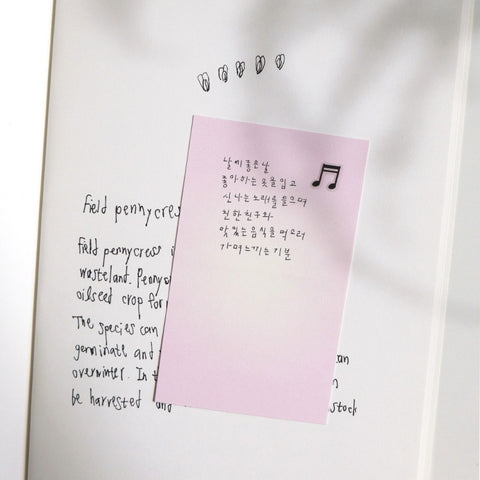 날이좋은날
좋아하는 옷을입고
신나는노래를 들으며
친한친구와
맛있는음식을 먹으러
가며느끼는기분
Field pennycress
Field pennycress
wasteland.
oilseed crop for
The species can
germinate and
overwinter. In
be harvested and stock